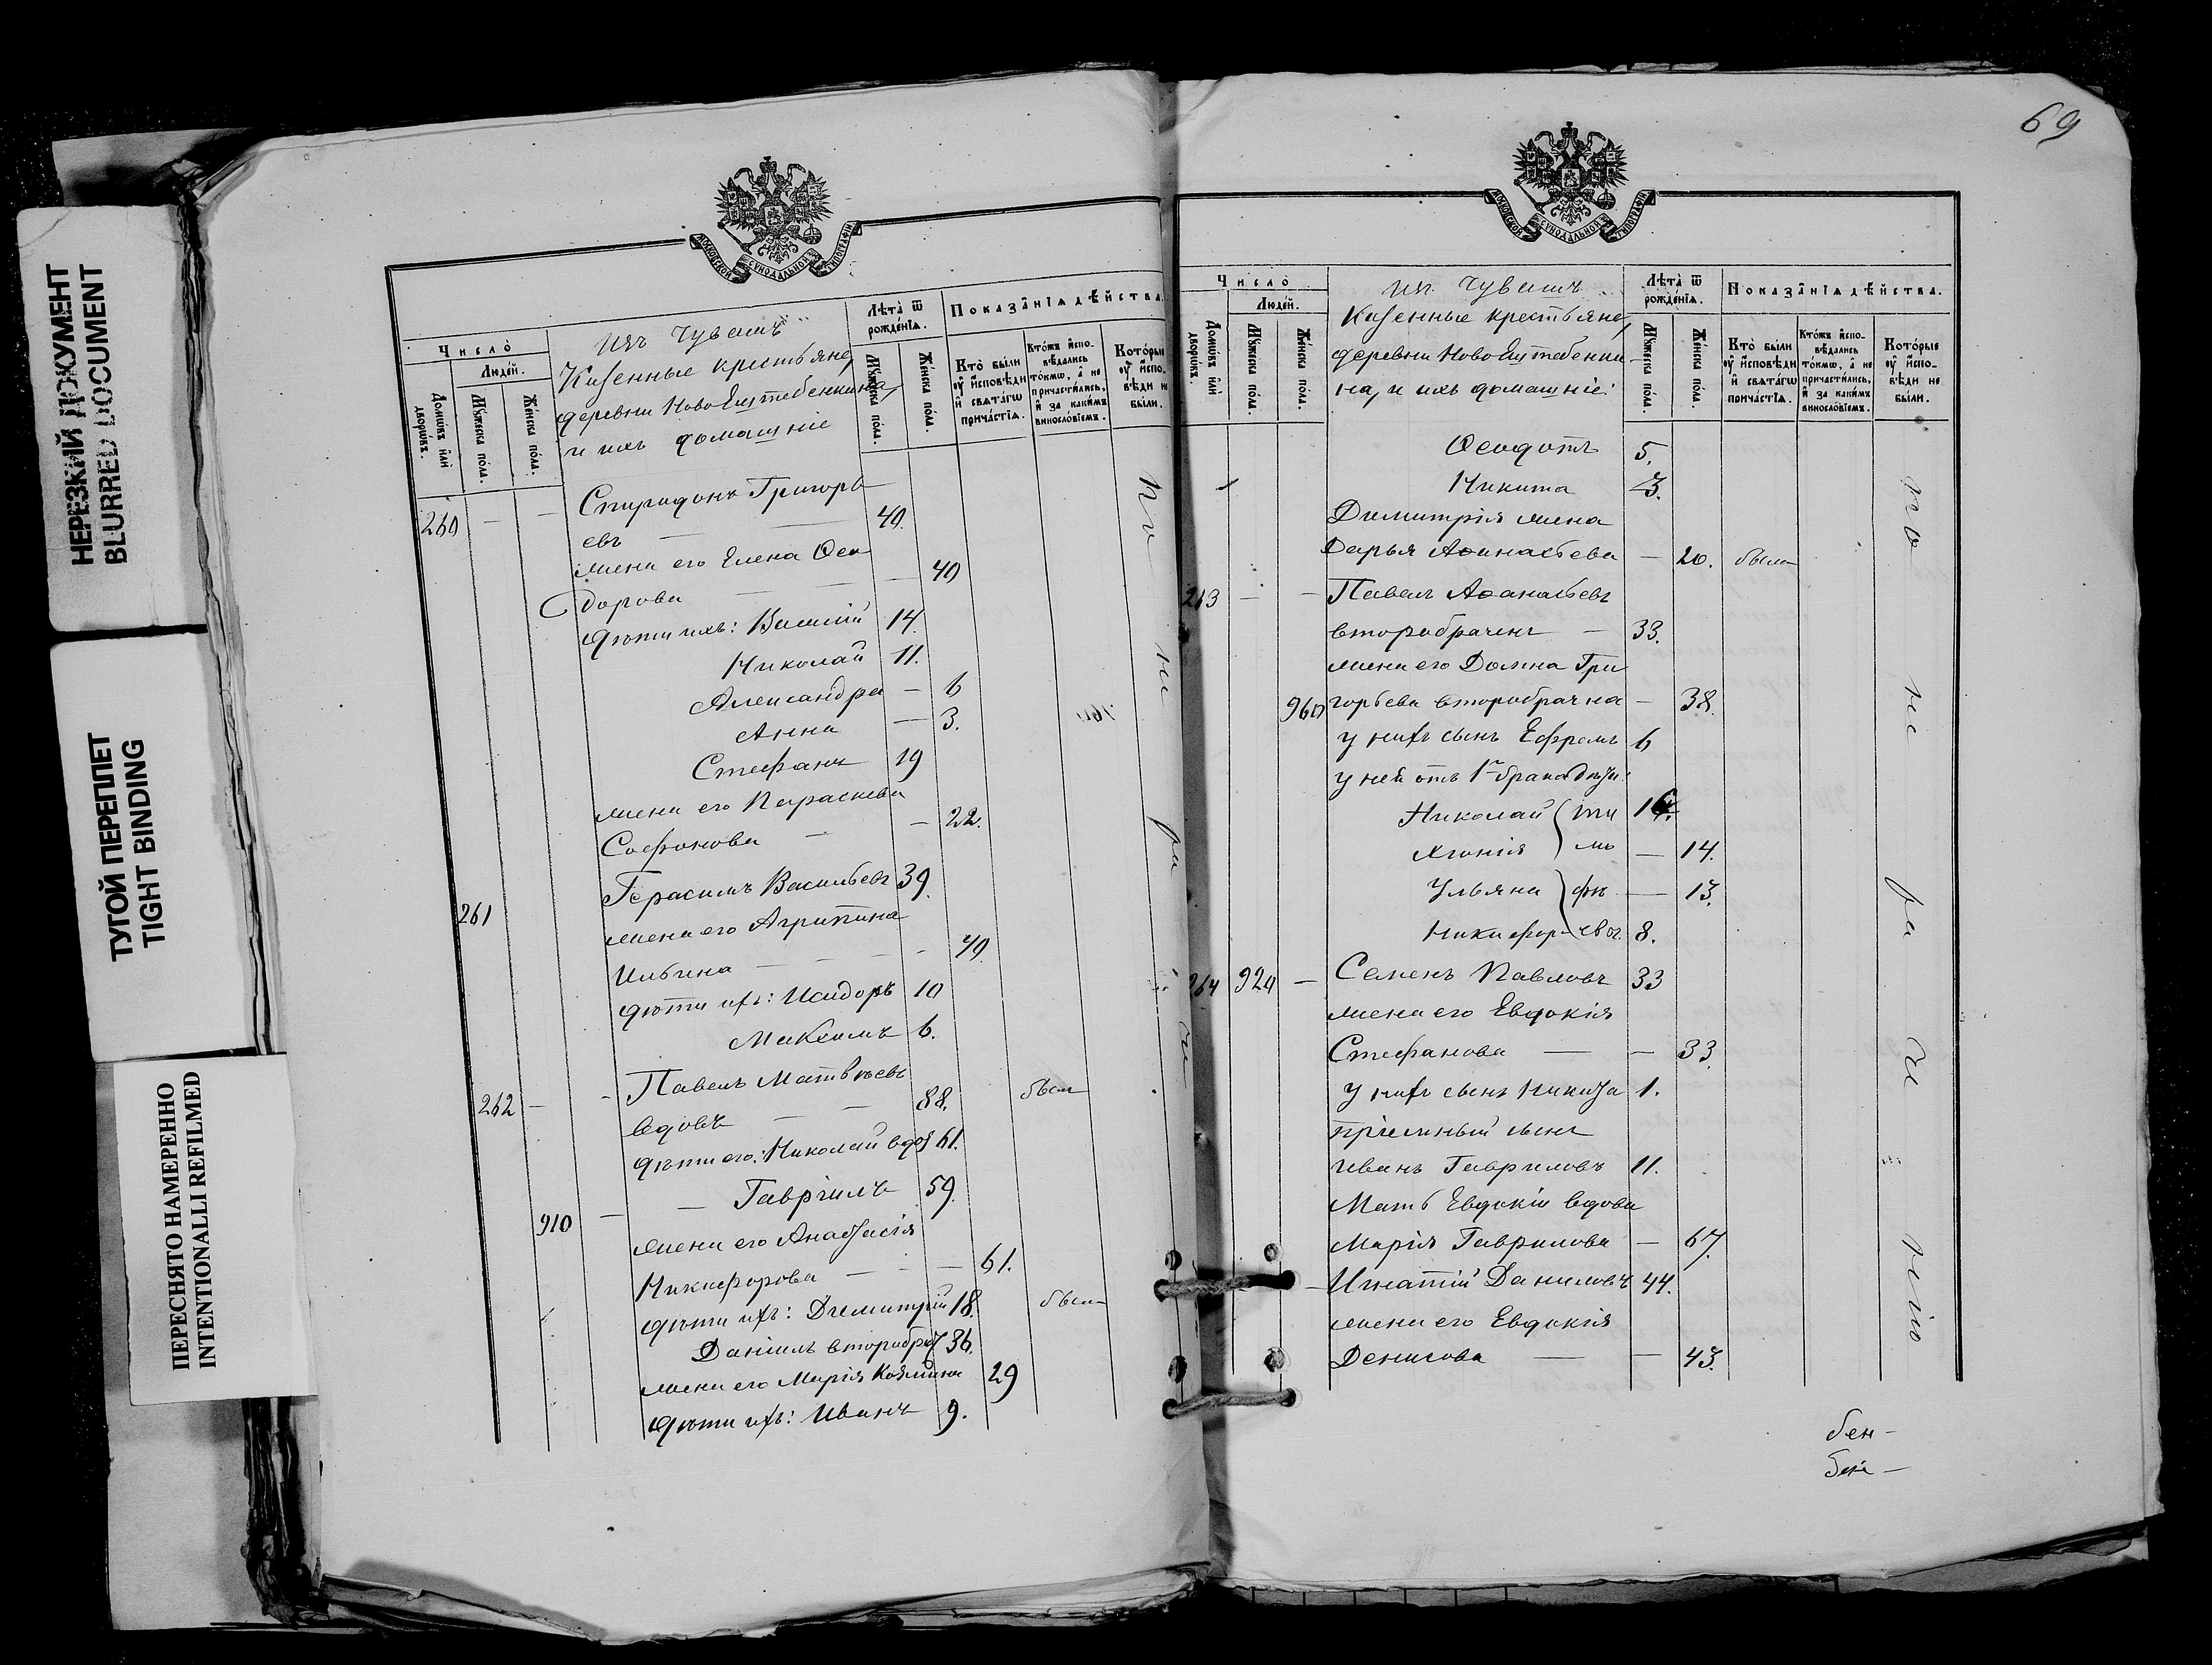 НЕРЕЗКИЙ ДОКУМЕНТ
BLURRED DOCUMENT
ТУГОЙ ПЕРЕПЛЕТ
TIGHT BINDING
ПЕРЕСНЯТО НАМЕРЕННО
INTENTIONALLI REFILMED
МОСКОВСКОЙ СѴНОДАЛЬНОЙ ТИПОГРАФІИ
Число̀
Людéй.
Домѡ́въ и҆лѝ дворѡ́въ.
Мꙋ́жеска пóла.
Жéнска пóла.
Изъ Чувашъ
Казенные крестьяне,
деревни Ново-Ештебенькина,
и ихъ домашніе
Лѣта̀ ѿ рождéнїѧ.
Мꙋ́жеска пóла.
Жéнска пóла.
Показáнїѧ дѣ́йства.
Кто̀ бы́ли оу҆ и҆сповѣди и҆ свѧтáгѡ причáстїѧ.
Ктóжъ и҆сповѣ́дались тóкмѡ, а҆ не причасти́лись, и҆ за каки́мъ винослóвїемъ.
Котóрые оу҆ и҆сповѣди не бы́ли.
260 — — Спиридонъ Григорь
евъ — 40.
жена его Елена Ѳео
дорова — — 40
дѣти ихъ: Василій 14.
Николай 11.
Александра — 6
Анна — 3.
Стефанъ 19
жена его Параскева
Софонова — — 22.
261 Герасимъ Васильевъ 39.
жена его Агрипина
Ильина — — 40.
дѣти ихъ: Исидоръ 10
Максимъ 6.
262 — — Павелъ Матвѣевъ
вдовъ — — 88. былъ
дѣти его: Николай вдов 61.
910 — — Гавріилъ 59.
жена его Анастасія
Никифорова — — 61.
дѣти ихъ: Димитрій 18. былъ
Даніилъ второбрач 36.
жена его Марія Козмина 29
дѣти ихъ: Иванъ 9.
по не ра че
69
МОСКОВСКОЙ СѴНОДАЛЬНОЙ ТИПОГРАФІИ
Число̀
Людéй.
Домѡ́въ и҆лѝ дворѡ́въ.
Мꙋ́жеска пóла.
Жéнска пóла.
Изъ Чувашъ
Казенные крестьяне,
деревни Ново-Ештебеньки-
на, и ихъ домашніе:
Лѣта̀ ѿ рождéнїѧ.
Мꙋ́жеска пóла.
Жéнска пóла.
Показáнїѧ дѣ́йства.
Кто̀ бы́ли оу҆ и҆сповѣди и҆ свѧтáгѡ причáстїѧ.
Ктóжъ и҆сповѣ́дались тóкмѡ, а҆ не причасти́лись, и҆ за каки́мъ винослóвїемъ.
Котóрые оу҆ и҆сповѣди не бы́ли.
Ѳеодотъ 5.
Никита 3.
Димитрія жена
Дарья Аѳанасьева — 20. была
263 — — Павелъ Аѳанасьевъ
второбраченъ — 33.
жена его Домна Гри
960 горьева второбрачна — 38.
у нихъ сынъ Ефремъ 6
у ней отъ 1го брака дѣти:
Николай (Ти 16.
Агнія ) мо — 14.
Ульяна ) фѣ — 13.
Никифор (евы. 8.
264 920 — Семенъ Павловъ 33
жена его Евдокія
Стефанова — — 33.
у нихъ сынъ Никита 1.
пріемный сынъ
Иванъ Гавриловъ 11.
Мать Евдокіи вдова
Марія Гаврилова — 67.
— Игнатій Даниловъ 44.
жена его Евдокія
Денисова — — 43.
по не ра че нію
бен-